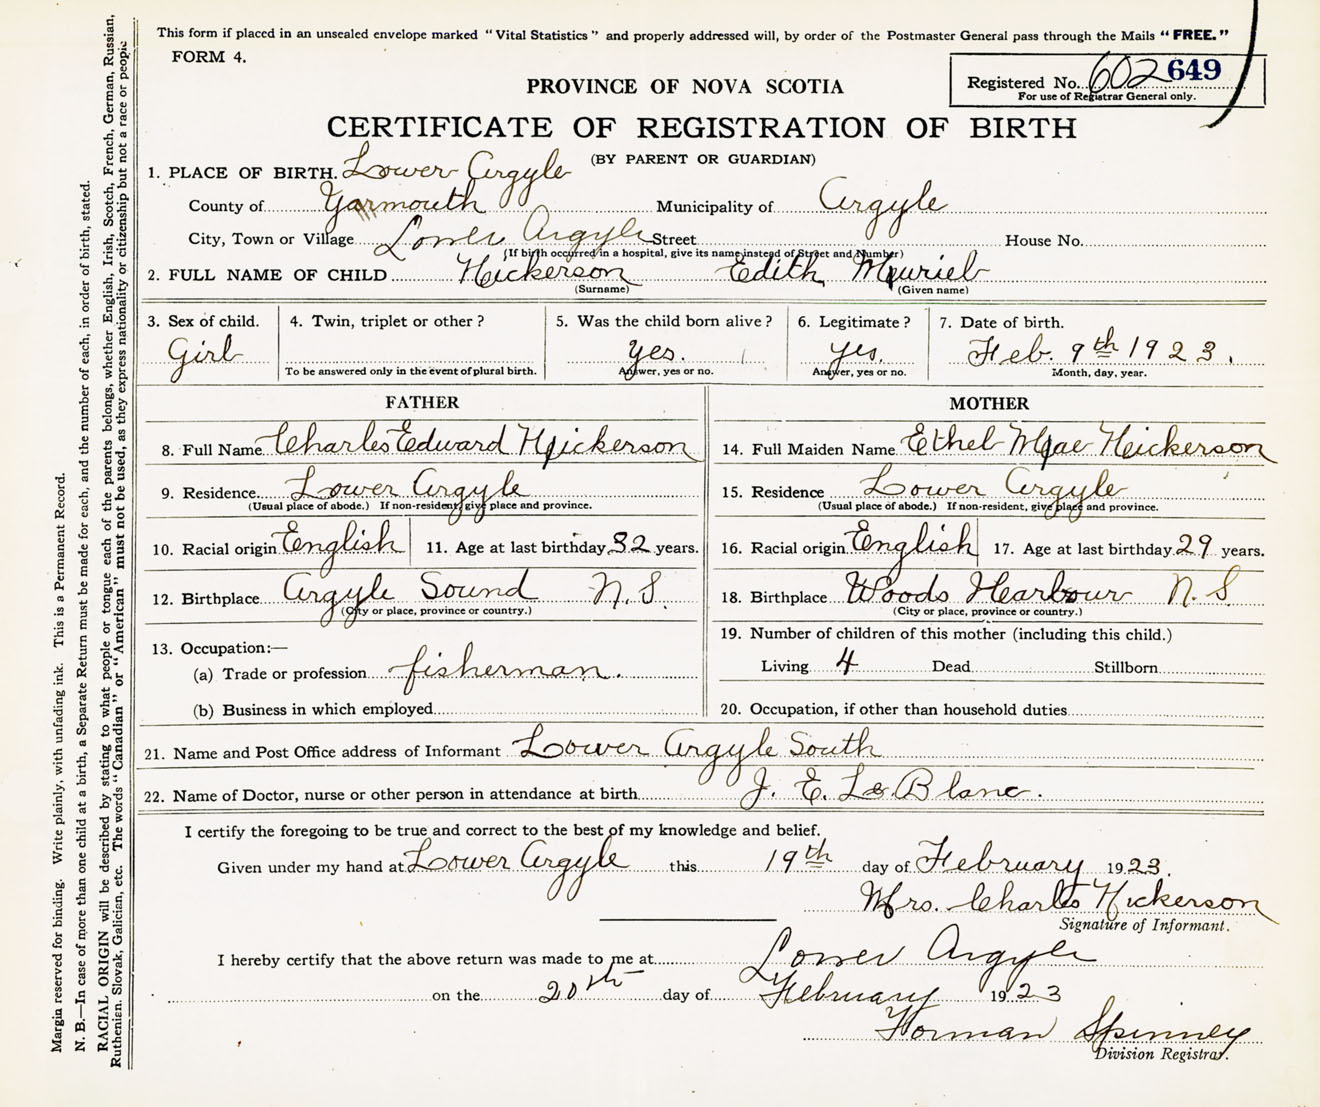 This form if placed in an unsealed envelope marked "Vital Statistics" and properly addressed will, by order of the Postmaster General pass through the Mails "FREE."
FORM 4.
Registered No. 602 649
For use of Registrar General only.
PROVINCE OF NOVA SCOTIA
CERTIFICATE OF REGISTRATION OF BIRTH
(BY PARENT OR GUARDIAN)
1. PLACE OF BIRTH. Lower Argyle
County of Yarmouth Municipality of Argyle
City, Town or Village Lower Argyle Street House No.
(If birth occurred in a hospital, give its name instead of Street and Number)
2. FULL NAME OF CHILD Nickerson Edith Muriel
(Surname) (Given name)
3. Sex of child. 4. Twin, triplet or other? 5. Was the child born alive? 6. Legitimate? 7. Date of birth.
Girl yes. yes. Feb. 9th 1923.
To be answered only in the event of plural birth. Answer, yes or no. Answer, yes or no. Month, day, year.
FATHER MOTHER
8. Full Name Charles Edward Nickerson 14. Full Maiden Name Ethel Mae Nickerson
9. Residence Lower Argyle 15. Residence Lower Argyle
(Usual place of abode.) If non-resident, give place and province. (Usual place of abode.) If non-resident, give place and province.
10. Racial origin English 11. Age at last birthday 32 years. 16. Racial origin English 17. Age at last birthday 29 years.
12. Birthplace Argyle Sound N.S. 18. Birthplace Woods Harbour N.S.
(City or place, province or country.) (City or place, province or country.)
13. Occupation:— 19. Number of children of this mother (including this child.)
(a) Trade or profession fisherman. Living 4 Dead Stillborn
(b) Business in which employed 20. Occupation, if other than household duties
21. Name and Post Office address of Informant Lower Argyle South
22. Name of Doctor, nurse or other person in attendance at birth J. E. LeBlanc.
I certify the foregoing to be true and correct to the best of my knowledge and belief.
Given under my hand at Lower Argyle this 19th day of February 1923.
Mrs. Charles Nickerson
Signature of Informant.
I hereby certify that the above return was made to me at Lower Argyle
on the 20th day of February 1923
Norman Spinney
Division Registrar.
Margin reserved for binding. Write plainly, with unfading ink. This is a Permanent Record.
N. B.—In case of more than one child at a birth, a Separate Return must be made for each, and the number of each, in order of birth, stated.
RACIAL ORIGIN will be described by stating to what people or tongue each of the parents belongs, whether English, Irish, Scotch, French, German, Russian,
Ruthenian, Slovak, Galician, etc. The words "Canadian" or "American" must not be used, as they express nationality or citizenship but not a race or people